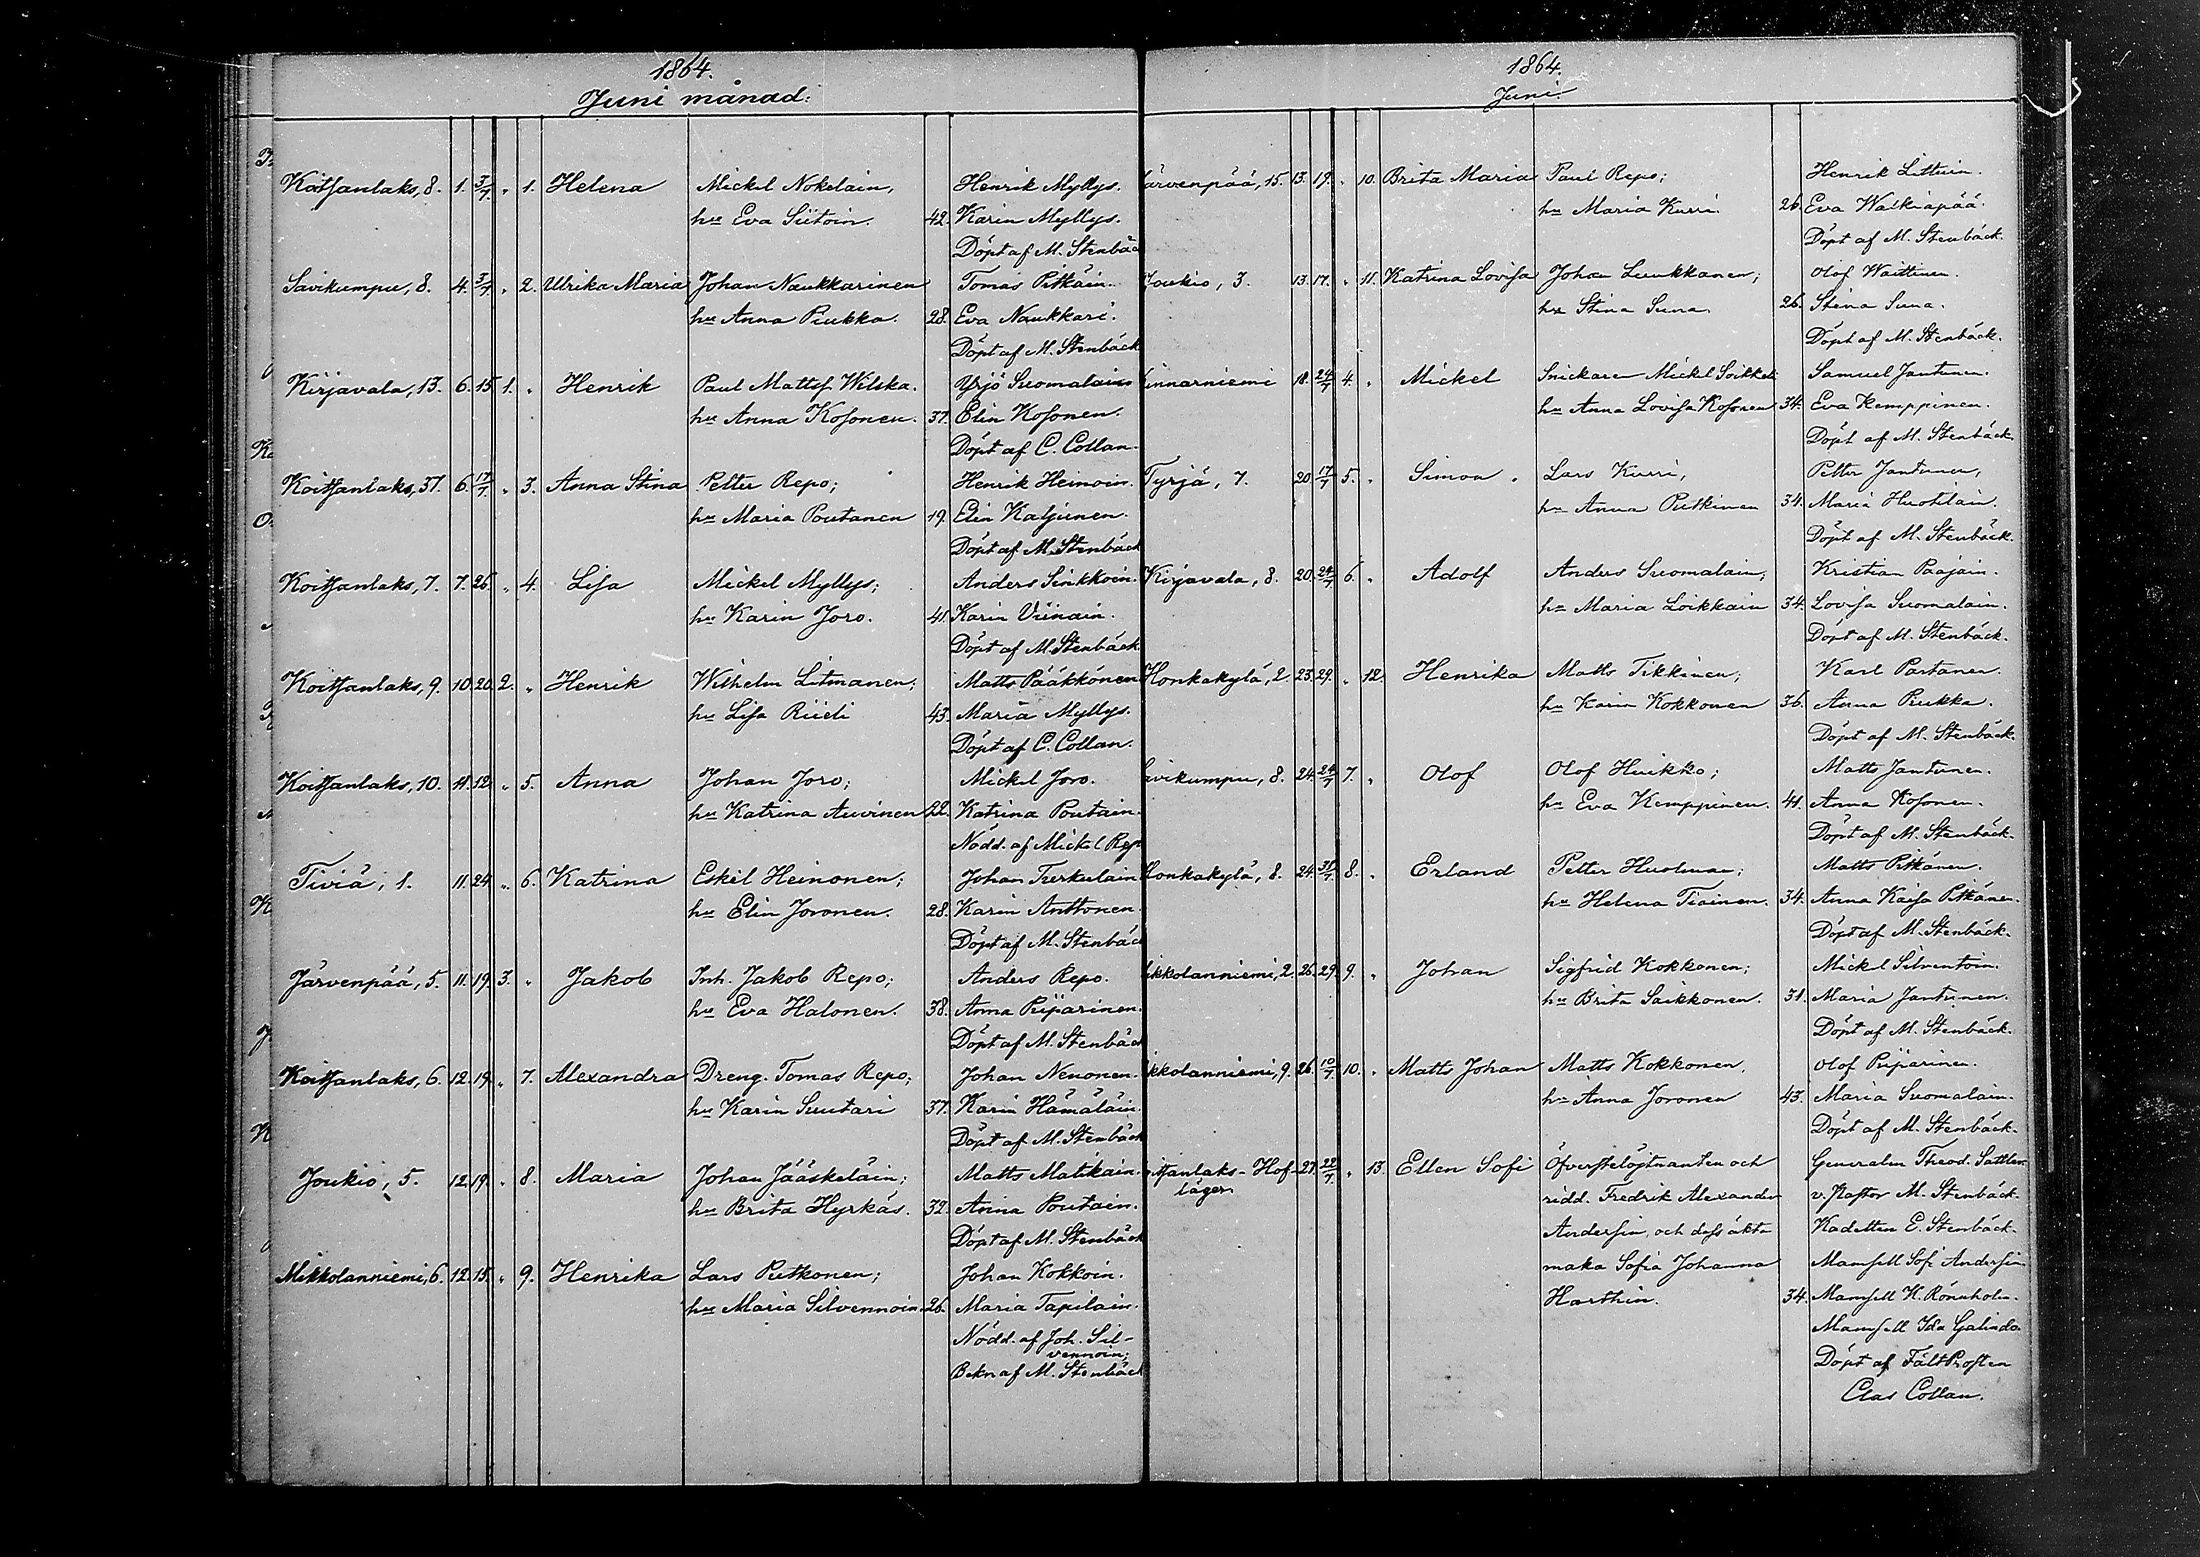 1864.
Juni månad:
Koitsanlaks, 8. 1. 3/7 " 1. Helena Mickel Nokelain, Henrik Myllys.
hu Eva Siitoin. 42. Karin Myllys.
Döpt af M. Stenbäck
Savikumpu, 8. 4. 3/7 " 2. Ulrika Maria Johan Naukkarinen Tomas Pitkäin.
hu Anna Piukka. 28. Eva Naukkari.
Döpt af M. Stenbäck
Kirjavala, 13. 6. 15 1. " Henrik Paul Mattsf. Wilska. Yrjö Suomalain
hu Anna Kosonen. 37. Elin Kosonen.
Döpt af C. Collan.
Koitsanlaks, 37. 6. 17/7 " 3. Anna Stina Petter Repo; Henrik Heinoin.
hu Maria Poutanen 19. Elin Kaljunen.
Döpt af M. Stenbäck
Koitsanlaks, 7. 7. 26. " 4. Lisa Mickel Myllys; Anders Sinkkoin.
hu Karin Joro. 41. Karin Viinain.
Döpt af M. Stenbäck.
Koitsanlaks, 9. 10. 20. 2. " Henrik Wilhelm Litmanen; Matts Pääkkönen
hu Lisa Riieli 43. Maria Myllys.
Döpt af C. Collan.
Koitsanlaks, 10. 11. 12. " 5. Anna Johan Joro; Mickel Joro.
hu Katrina Auvinen 22. Katrina Poutain.
Nödd. af Mickel Repo
Tiviä, 1. 11. 24. " 6. Katrina Eskil Heinonen; Johan Tserkulain
hu Elin Joronen. 28. Karin Anttonen.
Döpt af M. Stenbäck
Järvenpää, 5. 11. 19. 3. " Jakob Inh. Jakob Repo; Anders Repo.
hu Eva Halonen. 38. Anna Piiparinen.
Döpt af M. Stenbäck
Koitsanlaks, 6. 12. 19. " 7. Alexandra Dreng. Tomas Repo; Johan Nenonen.
hu Karin Suutari 37. Karin Hämäläin.
Döpt af M. Stenbäck
Joukio, 5. 12. 19. " 8. Maria Johan Jääskeläin; Matts Matikain.
hu Brita Hyrkäs. 32. Anna Poutain.
Döpt af M. Stenbäck
Mikkolanniemi, 6. 12. 15. " 9. Henrika Lars Putkonen; Johan Kokkoin.
hu Maria Silvennoin. 26. Maria Tapilain.
Nödd. af Joh. Sil-
vennoin;
Bekn af M. Stenbäck
1864.
Juni.
Järvenpää, 15. 13. 19. " 10. Brita Maria Paul Repo; Henrik Littuin.
hu Maria Kurri. 26. Eva Waikiapää.
Döpt af M. Stenbäck.
Joukio, 3. 13. 17. " 11. Katrina Lovisa Johan Luukkanen; Olof Waittinen.
hu Stina Suna. 26. Stina Suna.
Döpt af M. Stenbäck.
innarniemi 18. 24/7 4. " Mickel Snickare Mickl Soikkeli Samuel Jantunen.
hu Anna Lovisa Kosonen 34. Eva Kemppinen.
Döpt af M. Stenbäck.
Tyrjä, 7. 20 17/7 5. " Simon Lars Kurri, Petter Jantunen,
hu Anna Putkinen 34. Maria Huotilain.
Döpt af M. Stenbäck.
Kirjavala, 8. 20. 24/7 6. " Adolf Anders Suomalain; Kristian Paajain.
hu Maria Loikkain 34. Lovisa Suomalain.
Döpt af M. Stenbäck.
Honkakylä, 2 23. 29. " 12. Henrika Matts Tikkinen; Karl Partanen.
hu Karin Kokkonen 36. Anna Piukka.
Döpt af M. Stenbäck.
Savikumpu, 8. 24. 24/7 7. " Olof Olof Huikko; Matts Jantunen.
hu Eva Kemppinen. 41. Anna Kosonen.
Döpt af M. Stenbäck.
Honkakylä, 8. 24. 31/7 8. " Erland Petter Huolman; Matts Pitkänen.
hu Helena Tiainen. 34. Anna Kaisa Pitkänen.
Döpt af M. Stenbäck.
ikkolanniemi, 2. 26. 29. 9. " Johan Sigfrid Kokkonen; Mickel Silventoin.
hu Brita Saikkonen. 31. Maria Jantunen.
Döpt af M. Stenbäck.
ikkolanniemi, 9. 26. 10/7. 10. " Matts Johan Matts Kokkonen. Olof Piiparinen.
hu Anna Joronen 43. Maria Suomalain.
Döpt af M. Stenbäck.
itsanlaks-Hof- 27. 22/7. " 13. Ellen Sofi Öfverstelöjtnanten och Generalen Theod. Sattler
läger. ridd. Fredrik Alexander v. Pastor M. Stenbäck.
Andersin, och dess äkta Kadetten E. Stenbäck.
maka Sofia Johanna Mamsell Sofi Andersin
Harthin. 34. Mamsell K. Rönnholm.
Mamsell Ida Galindo.
Döpt af FältProsten
Clas Collan.